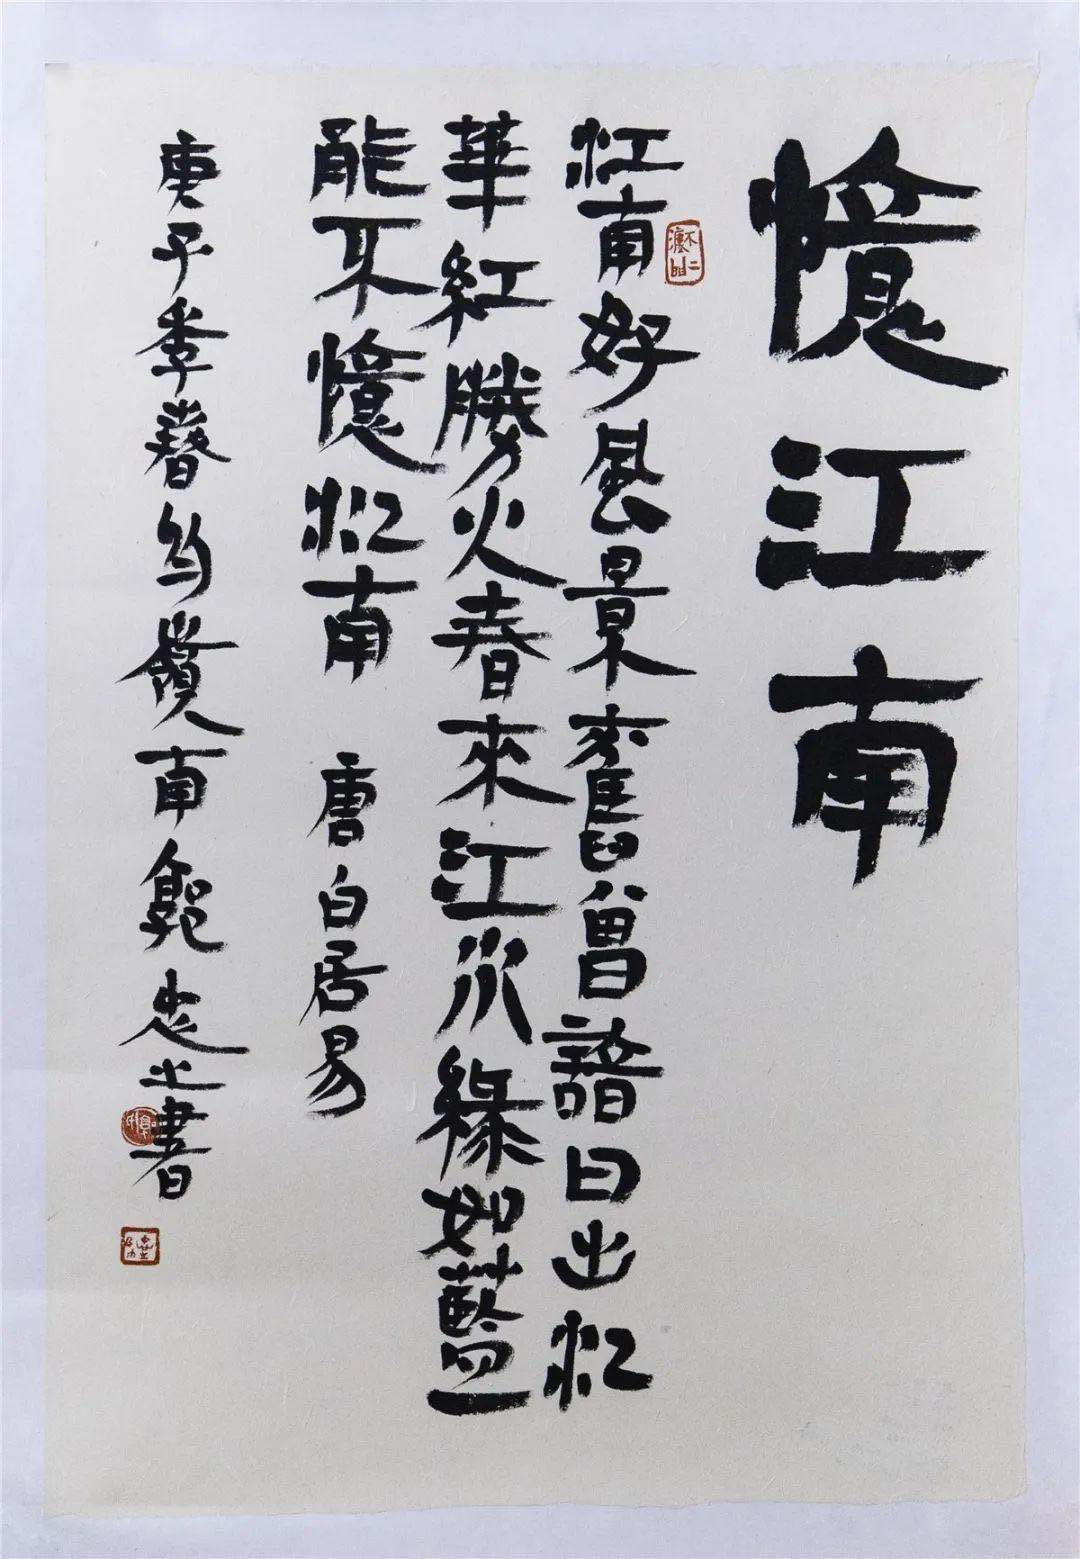 憶江南
江南好風景舊曾諳日出江
華紅勝火春來江水綠如藍
能不憶江南 唐白居易
庚子季春嶺南忠之書